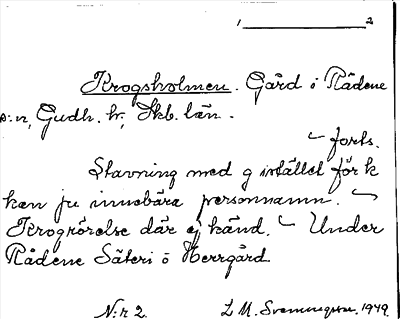 1 2
Krogsholmen. Gård i Rådene
s:n, Gudh. hr, Skb. län.
~ forts.
Stavning med g istället för k
kan ju innebära personnamn. ~
Krogrörelse där ej känd. ~ Under
Rådene Säteri o Herrgård.
N:r 2. L M. Svenungsson. 1949.